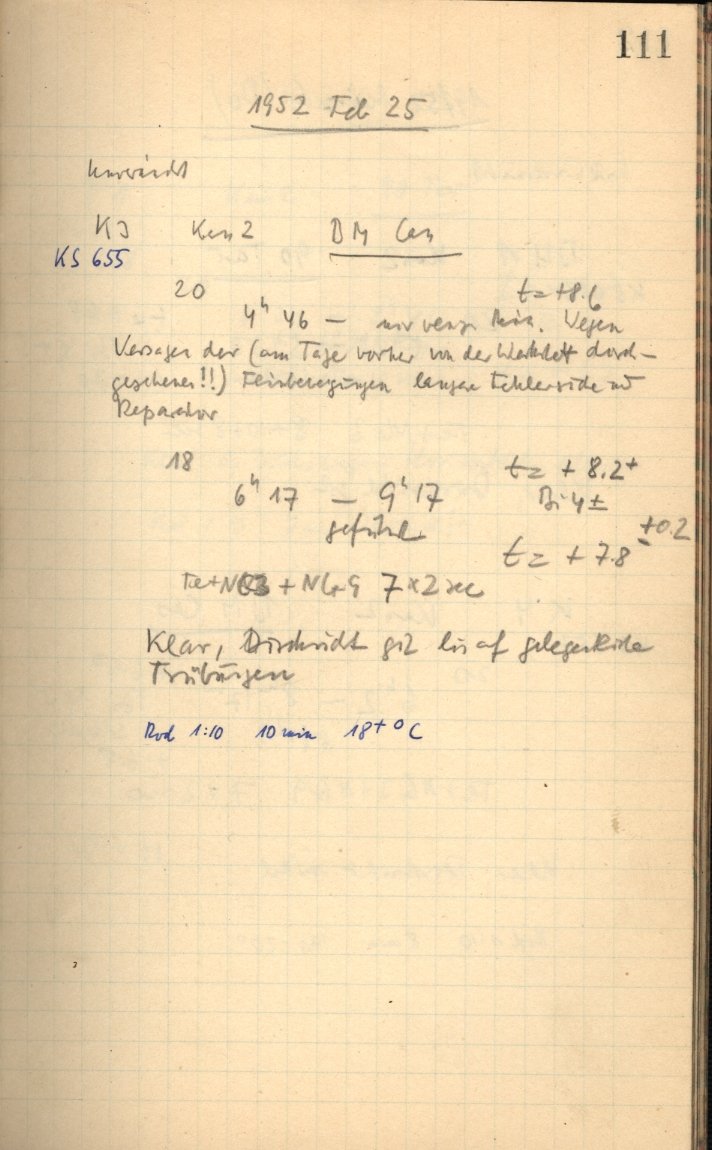 111
1952 Feb 25
K3 Kass 2 BM Can
KS 655
20 t = +8.6
4h 46 — nur wenige Min. Wegen
Versagen der (am Tage vorher von der Werkstatt durch-
gesehenen!!) Feinbewegungen lange Fehlersuche und
Reparatur
18 t = + 8.2+
6h 17 — 9h 17 Bi 4 ±
geführt +0.2
t = + 7.8
Fe+Ni + Ni+G 7 x 2 sec
Klar, Durchsicht gut bis auf gelegentliche
Trübungen
Rod 1:10 10 min 18+ °C